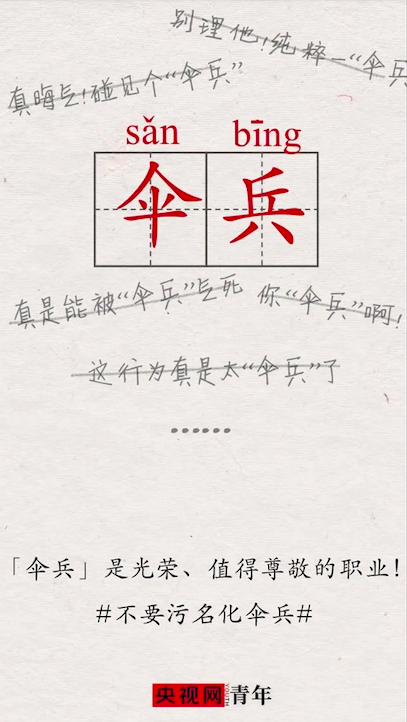 别理他!纯粹一“伞兵
真晦气!碰见个“伞兵”
sǎn bīng
伞兵
真是能被“伞兵”气死 你“伞兵”啊!
这行为真是太“伞兵”了
......
「伞兵」是光荣、值得尊敬的职业!
#不要污名化伞兵#
央视网YOUTH青年